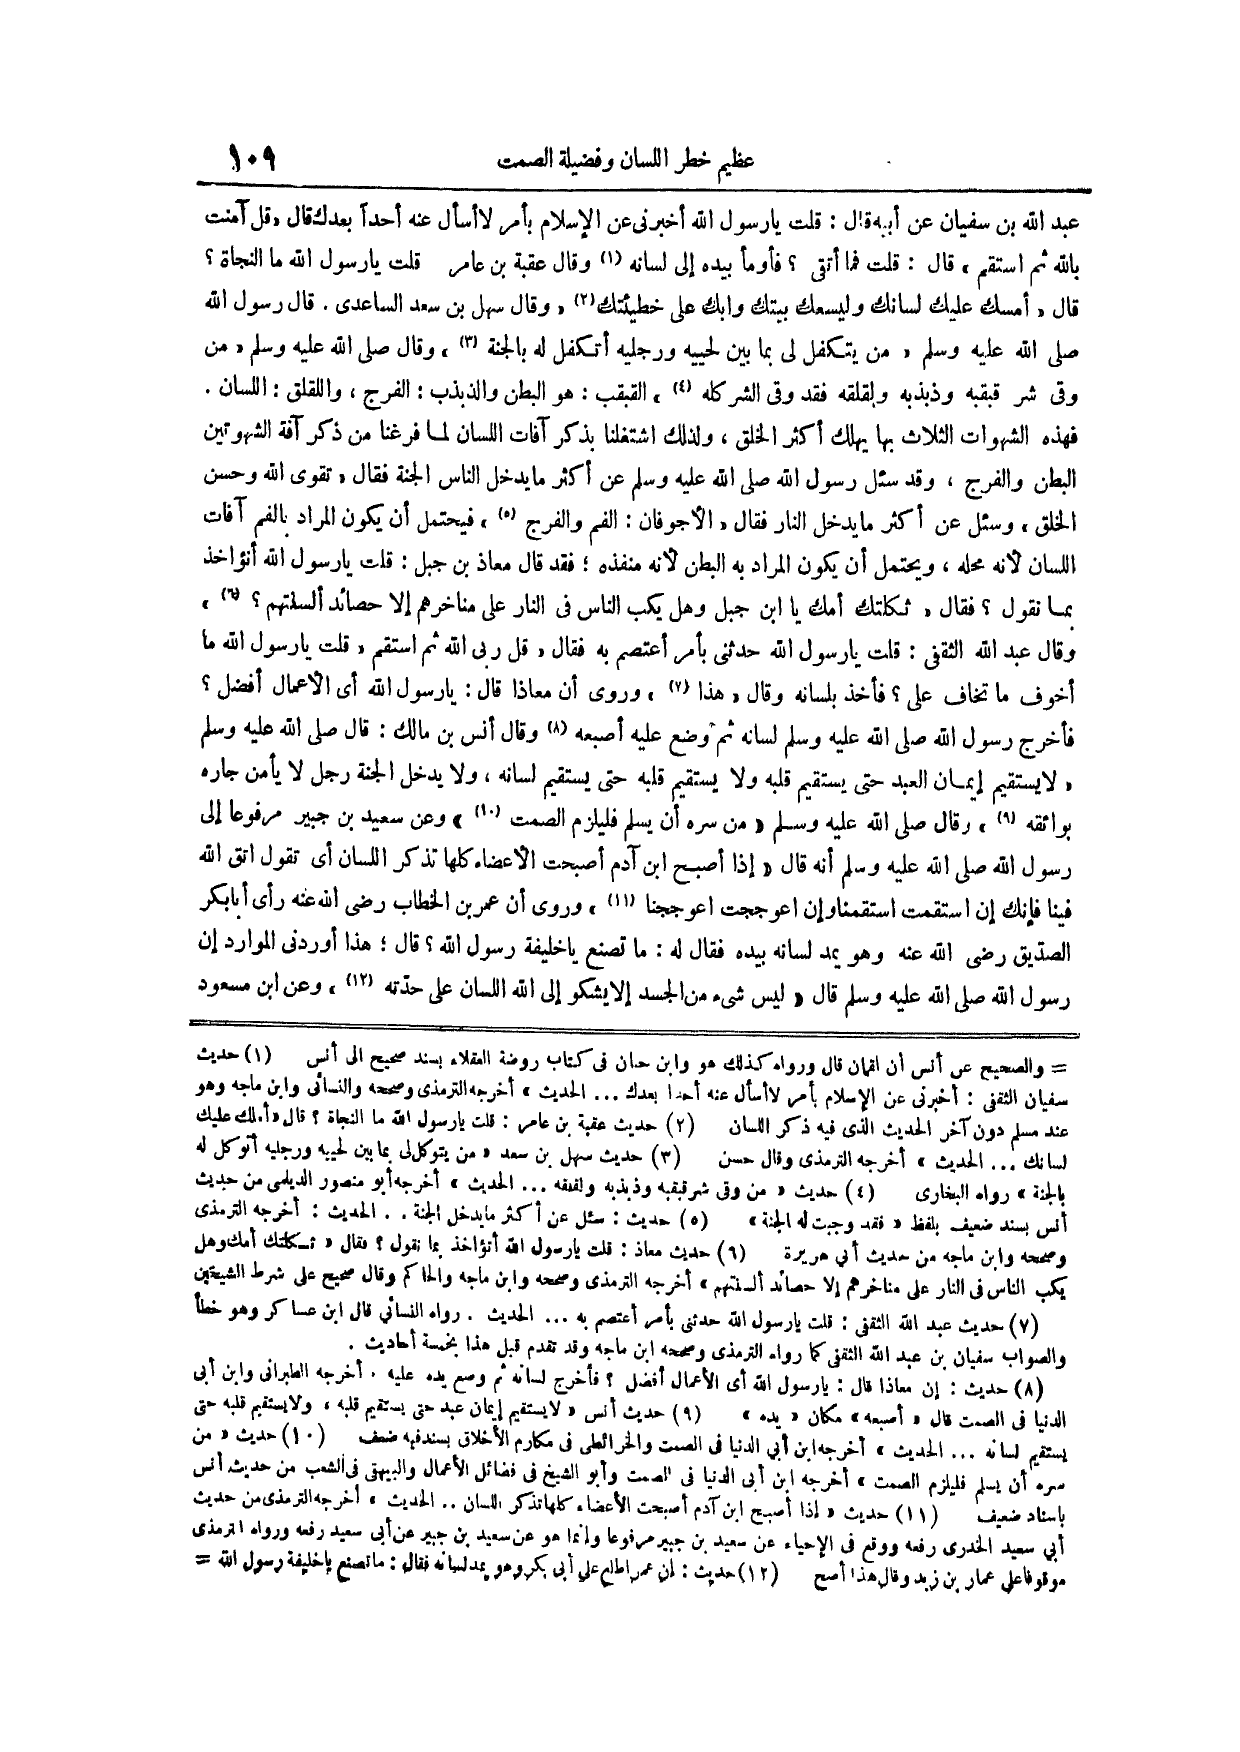 عظيم خطر اللسان وفضيلة الصمت ١٠٩
عبد الله بن سفيان عن أبيه قال : قلت يارسول الله أخبرنى عن الإسلام بأمر لاأسأل عنه أحداً بعدك قال « قل آمنت
بالله ثم استقم » قال : قلت فما أتقى ؟ فأومأ بيده إلى لسانه (١) وقال عقبة بن عامر قلت يارسول الله ما النجاة ؟
قال « أمسك عليك لسانك وليسعك بيتك وابك على خطيئتك (٢) » وقال سهل بن سعد الساعدى . قال رسول الله
صلى الله عليه وسلم « من يتكفل لى بما بين لحييه ورجليه أتكفل له بالجنة (٣) » وقال صلى الله عليه وسلم « من
وقى شر قبقبه وذبذبه ولقلقه فقد وقى الشر كله (٤) » القبقب : هو البطن والذبذب : الفرج ، واللقلق : اللسان .
فهذه الشهوات الثلاث بها يهلك أكثر الخلق ، ولذلك اشتغلنا بذكر آفات اللسان لما فرغنا من ذكر آفة الشهوتين
البطن والفرج ، وقد سئل رسول الله صلى الله عليه وسلم عن أكثر مايدخل الناس الجنة فقال « تقوى الله وحسن
الخلق » وسئل عن أكثر مايدخل النار فقال « الأجوفان : الفم والفرج (٥) » فيحتمل أن يكون المراد بالفم آفات
اللسان لأنه محله ، ويحتمل أن يكون المراد به البطن لأنه منفذه ؛ فقد قال معاذ بن جبل : قلت يارسول الله أنؤاخذ
بما نقول ؟ فقال « ثكلتك أمك يا ابن جبل وهل يكب الناس فى النار على مناخرهم إلا حصائد ألسنتهم ؟ (٦) »
وقال عبد الله الثقفى : قلت يارسول الله حدثنى بأمر أعتصم به فقال « قل ربى الله ثم استقم » قلت يارسول الله ما
أخوف ما تخاف على ؟ فأخذ بلسانه وقال « هذا (٧) » وروى أن معاذا قال : يارسول الله أى الأعمال أفضل ؟
فأخرج رسول الله صلى الله عليه وسلم لسانه ثم وضع عليه أصبعه (٨) وقال أنس بن مالك : قال صلى الله عليه وسلم
« لايستقيم إيمان العبد حتى يستقيم قلبه ولا يستقيم قلبه حتى يستقيم لسانه ، ولا يدخل الجنة رجل لا يأمن جاره
بوائقه (٩) » وقال صلى الله عليه وسلم « من سره أن يسلم فليلزم الصمت (١٠) » وعن سعيد بن جبير مرفوعا إلى
رسول الله صلى الله عليه وسلم أنه قال « إذا أصبح ابن آدم أصبحت الأعضاء كلها تذكر اللسان أى تقول اتق الله
فينا فإنك إن استقمت استقمنا وإن اعوججت اعوججنا (١١) » وروى أن عمر بن الخطاب رضى الله عنه رأى أبا بكر
الصديق رضى الله عنه وهو يمد لسانه بيده فقال له : ما تصنع ياخليفة رسول الله ؟ قال ؛ هذا أوردنى الموارد إن
رسول الله صلى الله عليه وسلم قال « ليس شىء من الجسد إلا يشكو إلى الله اللسان على حدّته (١٢) » وعن ابن مسعود
= والصحيح عن أنس أن لقمان قال ورواه كذلك هو وابن حبان فى كتاب روضة العقلاء بسند صحيح الى أنس (١) حديث
سفيان الثقفى : أخبرنى عن الإسلام بأمر لاأسأل عنه أحدا بعدك ... الحديث » أخرجه الترمذى وصححه والنسائى وابن ماجه وهو
عند مسلم دون آخر الحديث الذى فيه ذكر اللسان (٢) حديث عقبة بن عامر : قلت يارسول الله ما النجاة ؟ قال « أملك عليك
لسانك ... الحديث » أخرجه الترمذى وقال حسن (٣) حديث سهل بن سعد « من يتوكل لى بما بين لحييه ورجليه أتوكل له
بالجنة » رواه البخارى (٤) حديث « من وقى شر قبقبه وذبذبه ولقلقه ... الحديث » أخرجه أبو منصور الديلمى من حديث
أنس بسند ضعيف بلفظ « فقد وجبت له الجنة » (٥) حديث : سئل عن أكثر مايدخل الجنة .. الحديث : أخرجه الترمذى
وصححه وابن ماجه من حديث أبي هريرة (٦) حديث معاذ : قلت يارسول الله أنؤاخذ بما نقول ؟ فقال « ثكلتك أمك وهل
يكب الناس فى النار على مناخرهم إلا حصائد ألسنتهم » أخرجه الترمذى وصححه وابن ماجه والحاكم وقال صحيح على شرط الشيخين
(٧) حديث عبد الله الثقفى : قلت يارسول الله حدثنى بأمر أعتصم به ... الحديث . رواه النسائي قال ابن عساكر وهو خطأ
والصواب سفيان بن عبد الله الثقفى كما رواه الترمذى وصححه ابن ماجه وقد تقدم قبل هذا بخمسة أحاديث .
(٨) حديث : إن معاذا قال : يارسول الله أى الأعمال أفضل ؟ فأخرج لسانه ثم وضع يده عليه . أخرجه الطبرانى وابن أبى
الدنيا فى الصمت قال « أصبعه » مكان « يده » (٩) حديث أنس « لايستقيم إيمان عبد حتى يستقيم قلبه ، ولايستقيم قلبه حتى
يستقيم لسانه ... الحديث » أخرجه ابن أبي الدنيا فى الصمت والخرائطى فى مكارم الأخلاق بسند فيه ضعف (١٠) حديث « من
سره أن يسلم فليلزم الصمت » أخرجه ابن أبى الدنيا فى الصمت وأبو الشيخ فى فضائل الأعمال والبيهقى فى الشعب من حديث أنس
باسناد ضعيف (١١) حديث « إذا أصبح ابن آدم أصبحت الأعضاء كلها تذكر اللسان .. الحديث » أخرجه الترمذى من حديث
أبي سعيد الخدرى رفعه ووقع فى الإحياء عن سعيد بن جبير مرفوعا وإنما هو عن سعيد بن جبير عن أبى سعيد رفعه ورواه الترمذى
موقوفا على عمار بن زيد وقال هذا أصح (١٢) حديث : إن عمر اطلع على أبى بكر وهو يمد لسانه فقال : ماتصنع ياخليفة رسول الله =